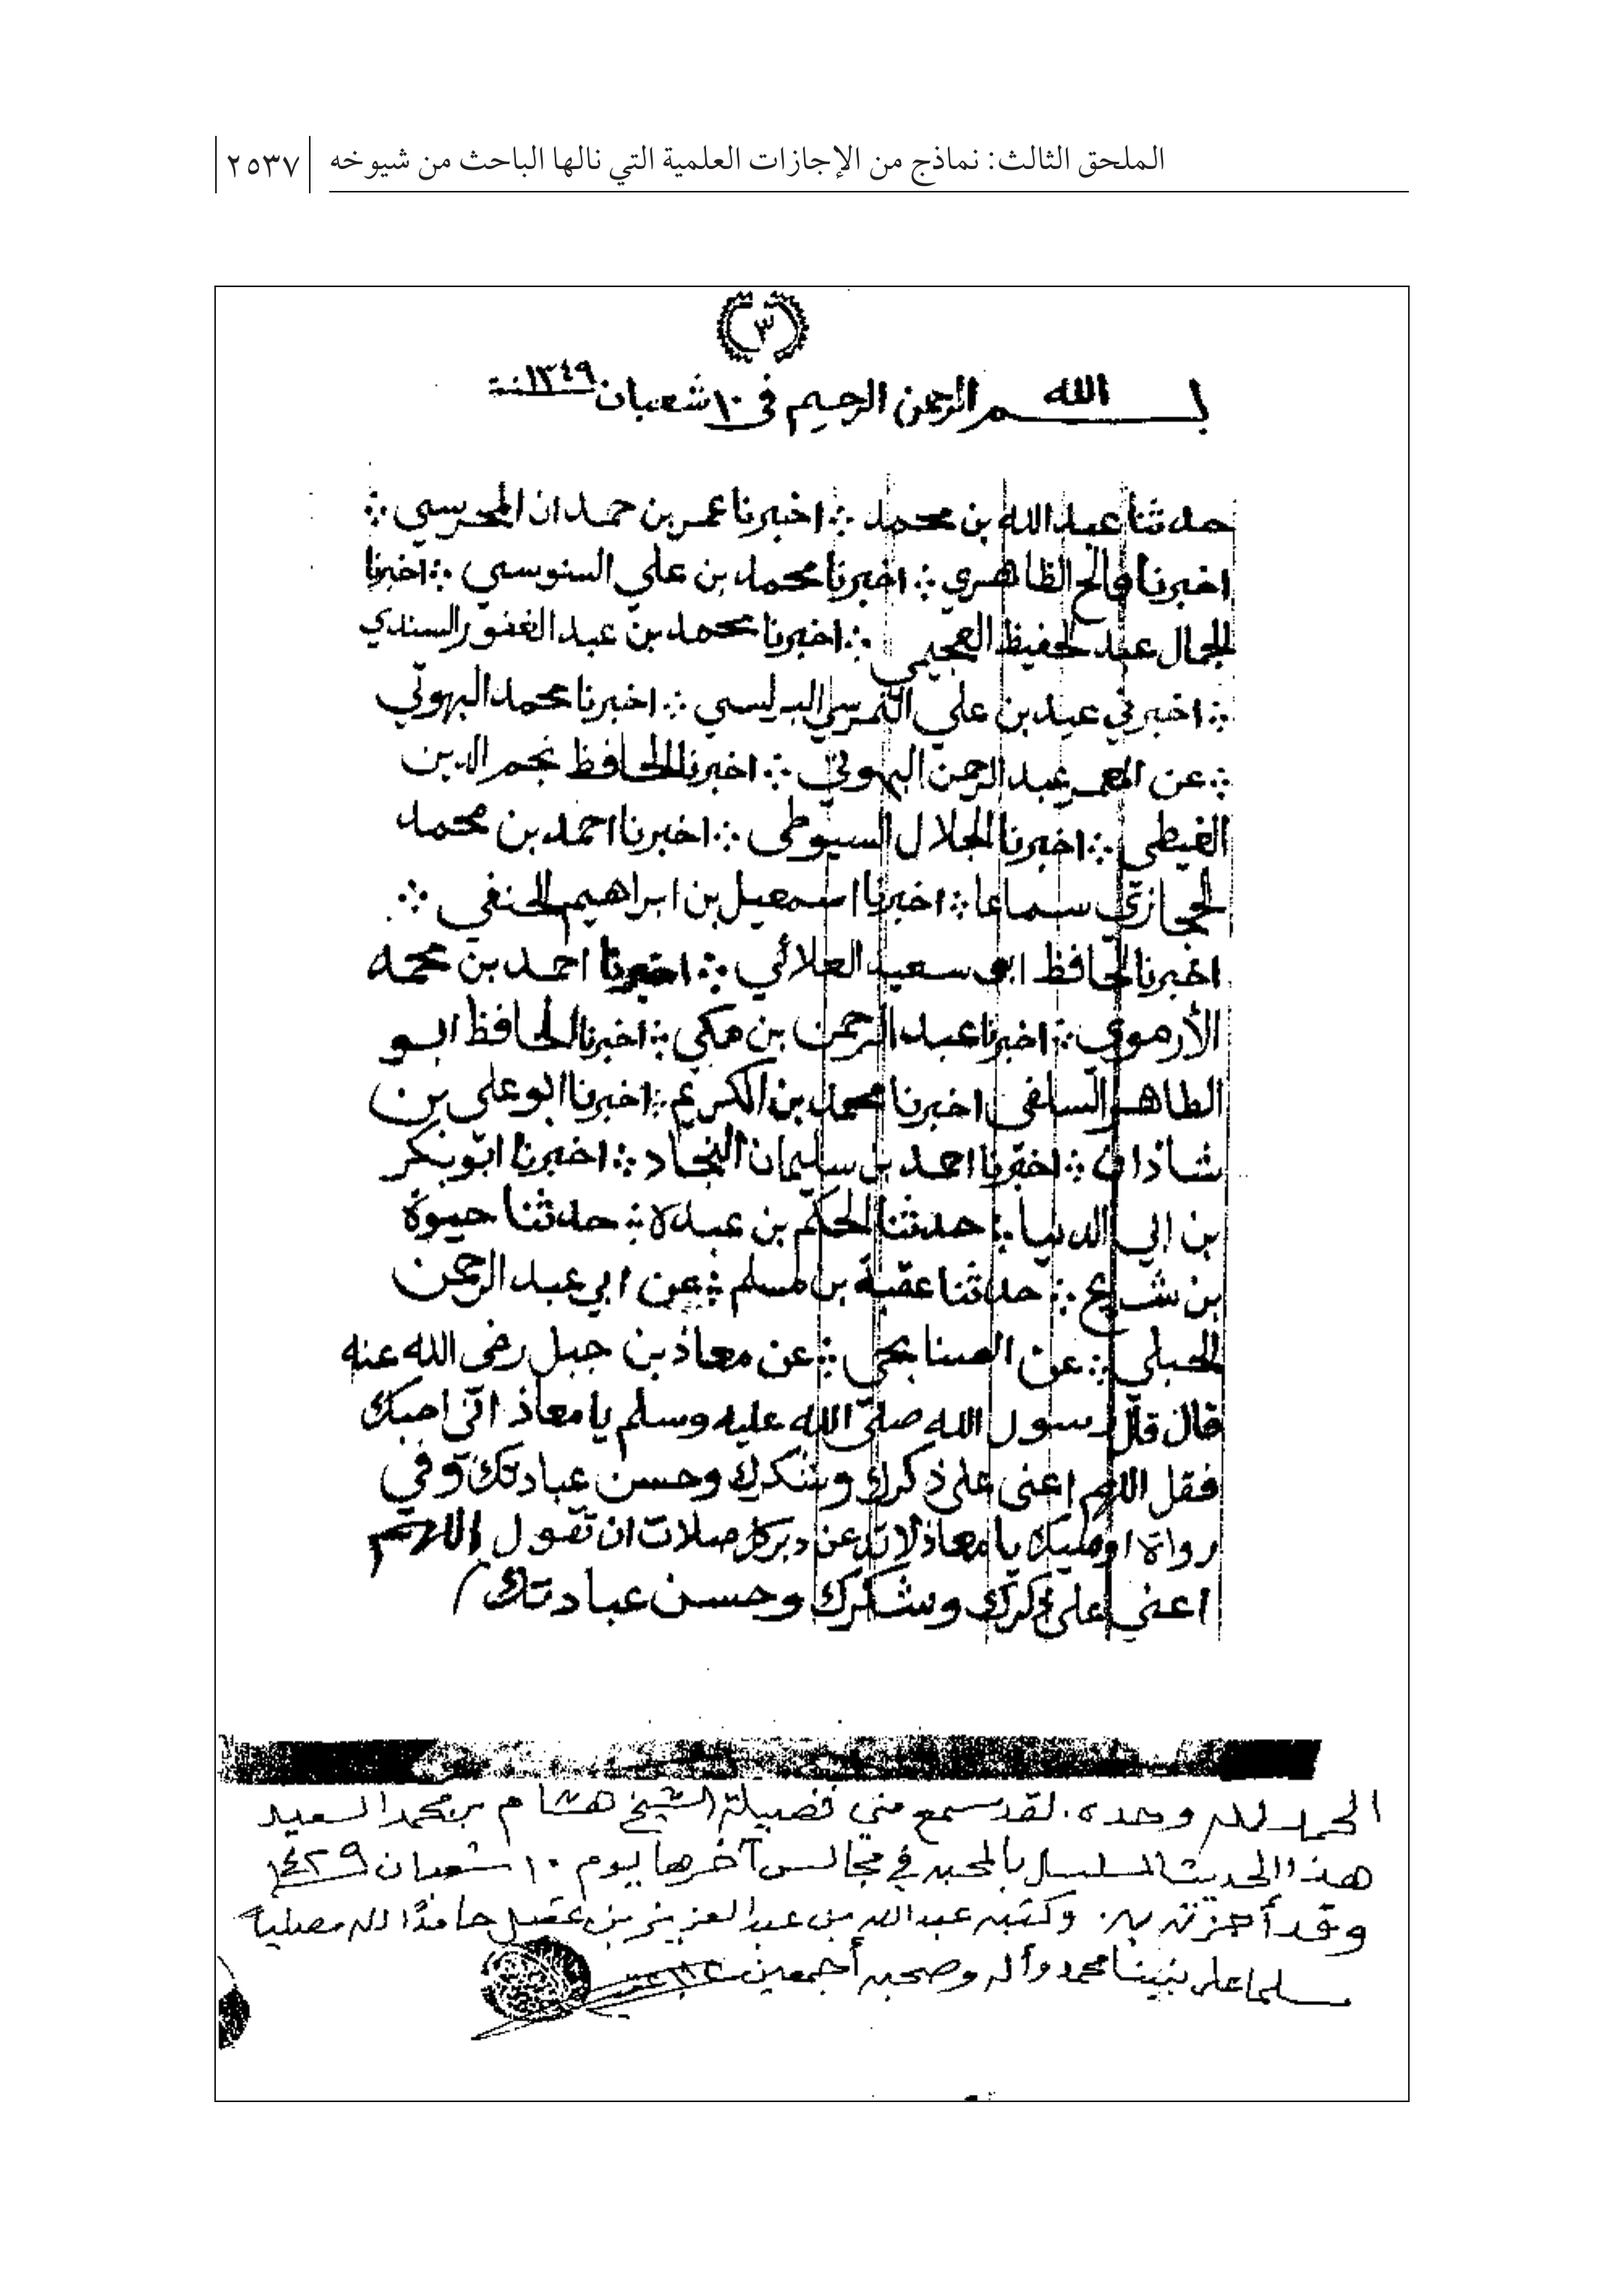 الملحق الثالث: نماذج من الإجازات العلمية التي نالها الباحث من شيوخه ٢٥٣٧
٣
بسم الله الرحمن الرحيم فى ١٠ شعبان سنة ١٣٤٩
حدثنا عبد الله بن محمد ∴ اخبرنا عمر بن حمدان المحرسي ∴
اخبرنا فالح الظاهري ∴ اخبرنا محمد بن علي السنوسي ∴ اخبرنا
الجمال عبد الحفيظ العجيمي ∴ اخبرنا محمد بن عبد الغفور السندي
∴ اخبرني عيد بن علي النمرسي البرلسي ∴ اخبرنا محمد البهوتي
∴ عن المعمر عبد الرحمن البهوتي ∴ اخبرنا الحافظ نجم الدين
الغيطي ∴ اخبرنا الجلال السيوطي ∴ اخبرنا احمد بن محمد
الحجازي سماعا ∴ اخبرنا اسمعيل بن ابراهيم الحنفي ∴
اخبرنا الحافظ ابو سعيد العلائي ∴ اخبرنا احمد بن محمد
الأرموي ∴ اخبرنا عبد الرحمن بن مكي ∴ اخبرنا الحافظ ابو
الطاهر السلفى اخبرنا محمد بن الكريم ∴ اخبرنا ابو على بن
شاذان ∴ اخبرنا احمد بن سليمان النجاد ∴ اخبرنا ابو بكر
بن ابي الدنيا ∴ حدثنا الحكم بن عبدة ∴ حدثنا حيوة
بن شريح ∴ حدثنا عقبة بن مسلم ∴ عن ابي عبد الرحمن
الحبلي ∴ عن الصنابحى ∴ عن معاذ بن جبل رضى الله عنه
قال قال رسول الله صلى الله عليه وسلم يا معاذ انى احبك
فقل اللهم اعنى على ذكرك وشكرك وحسن عبادتك وفي
رواة اوصيك يا معاذ لا تدعن دبر كل صلات ان تقول اللهم
اعني على ذكرك وشكرك وحسن عبادتك
الحمد لله وحده. لقد سمع مني فضيلة الشيخ هشام بن محمد السعيد
هذا الحديث المسلسل بالمحبة في مجالس آخرها يوم ١٠ شعبان ١٤٢٩
وقد أجزته به. وكتبه عبد الله بن عبد العزيز بن عقيل حامدًا لله مصليا
مسلما على نبينا محمد وآله وصحبه أجمعين